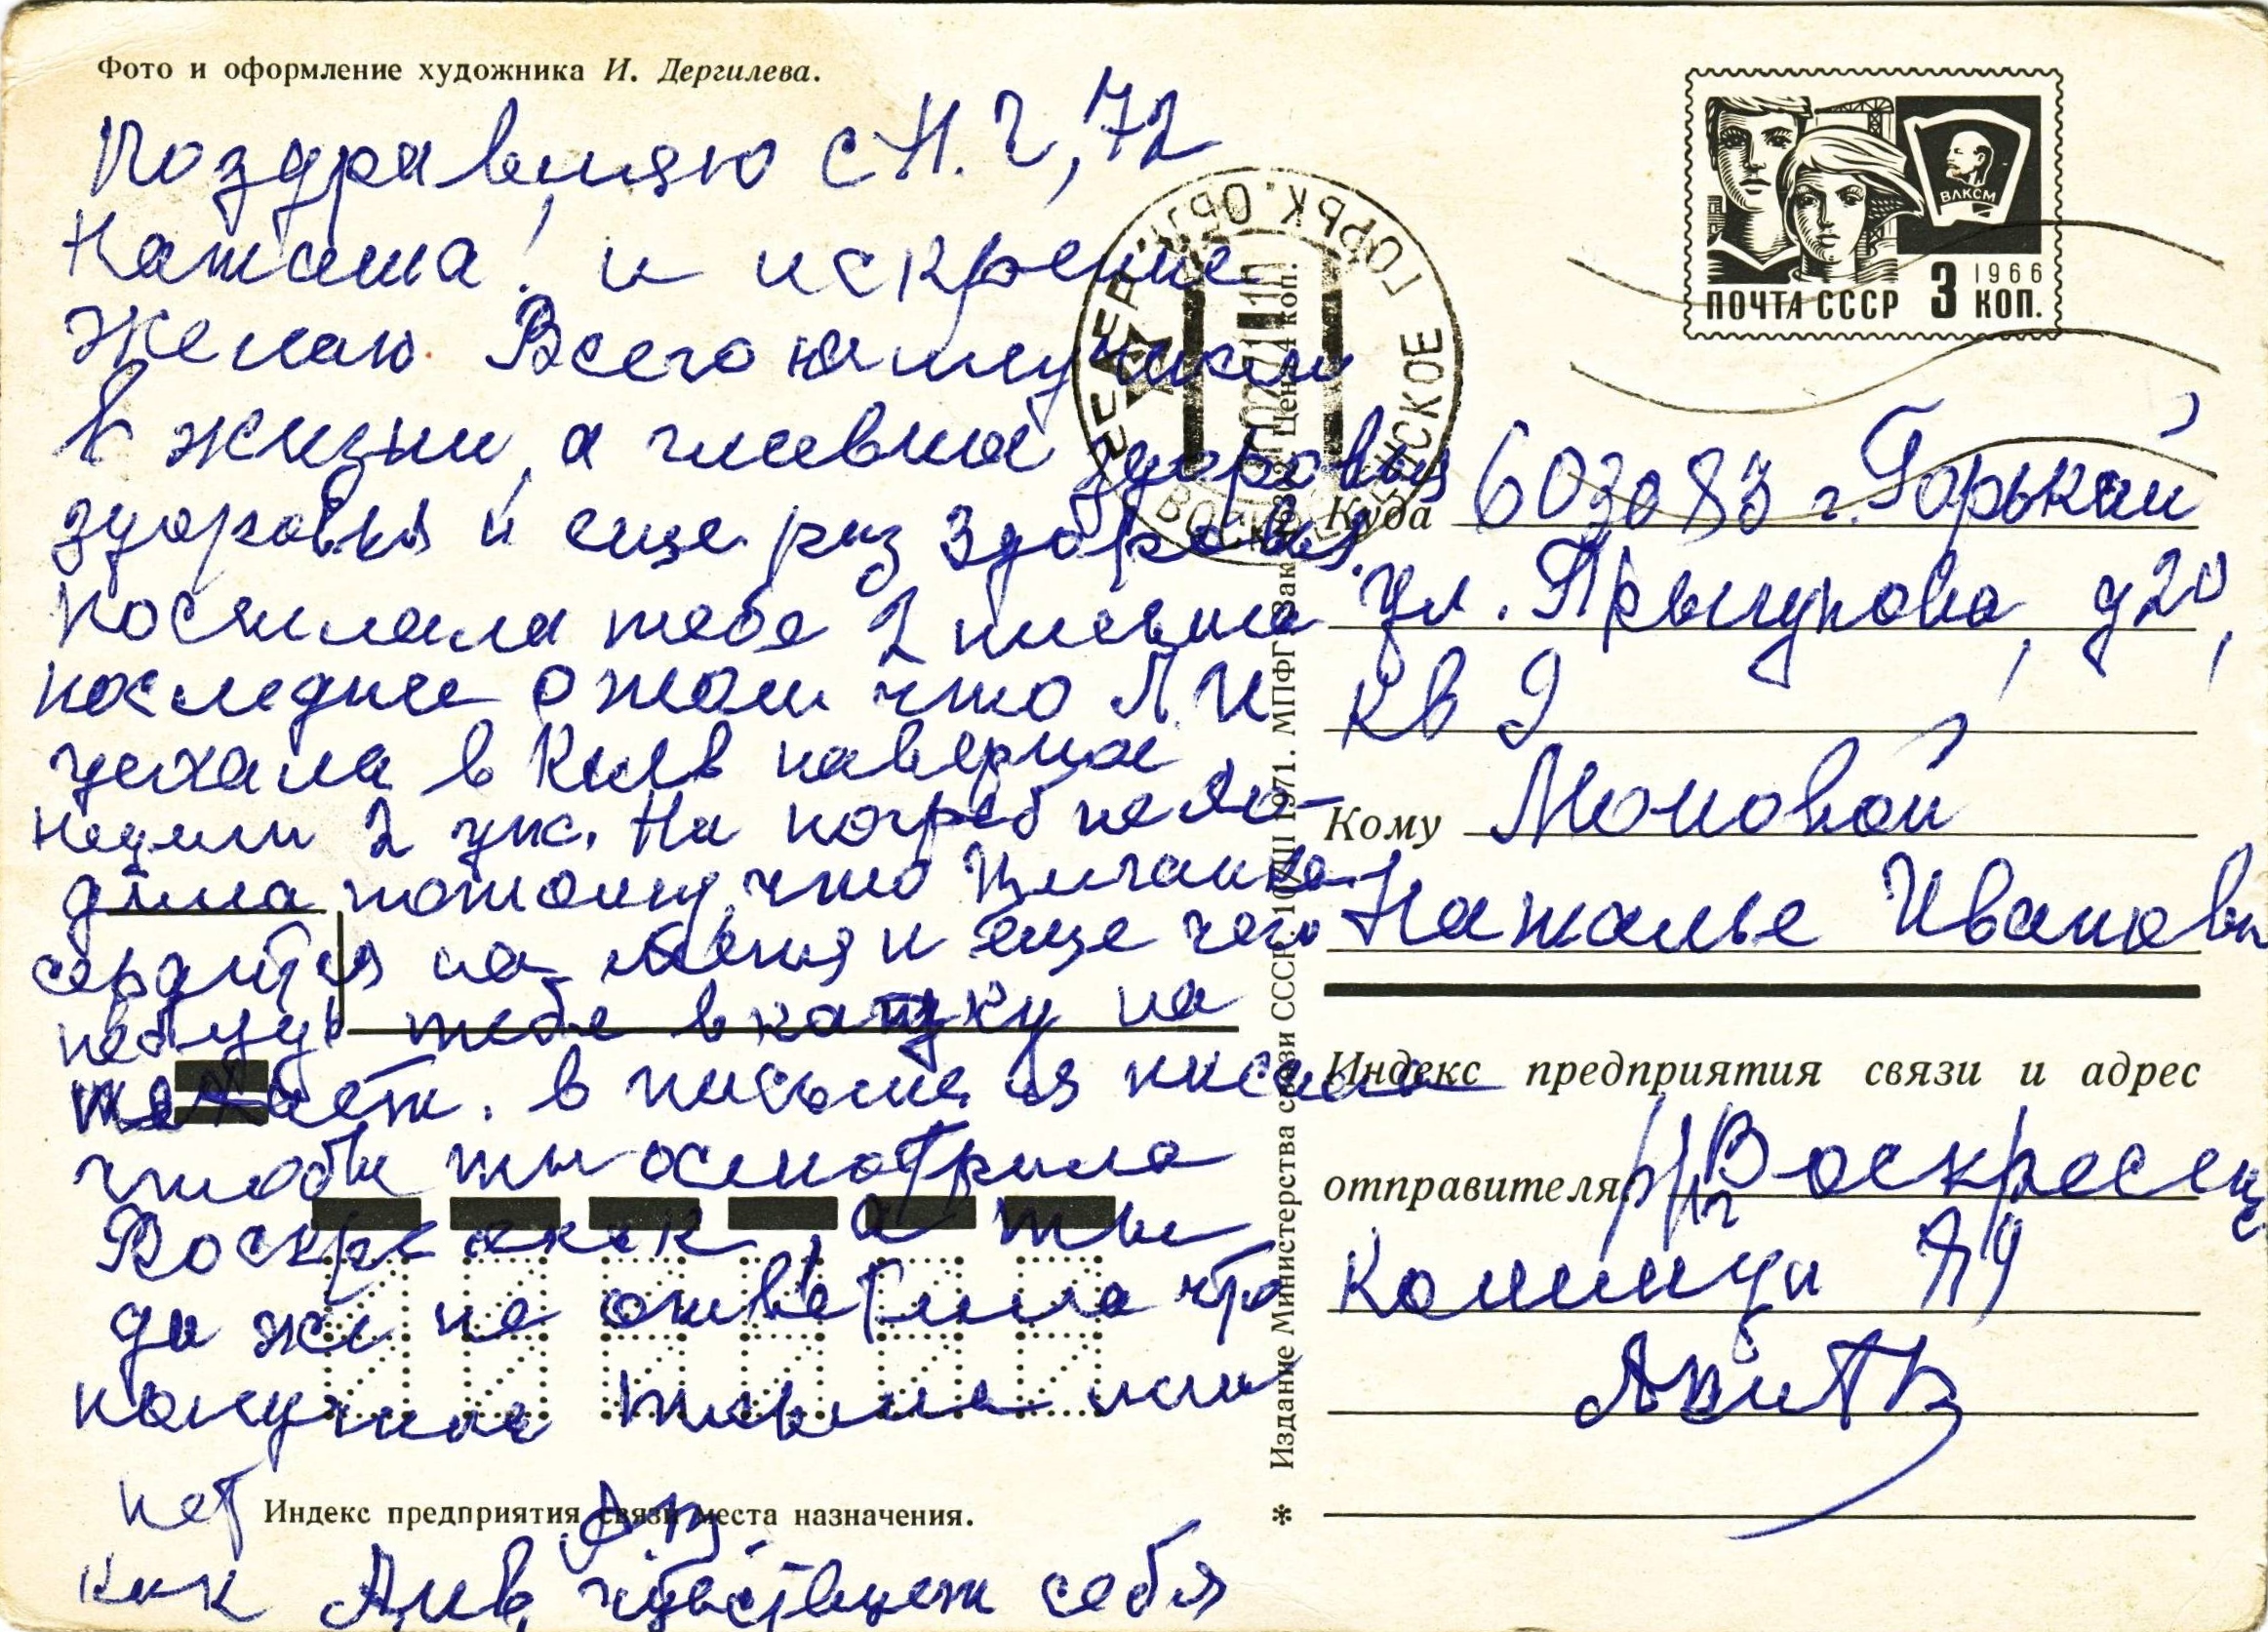 Фото и оформление художника И. Дергилева.
Поздравляю с Н. Г, 72
Наташа! и искренне
Желаю Всего наилучшего
в жизни, а главное здоровья
здоровья и еще раз здоровья.
посылала тебе 2 письма
последнее о том что Л. И
уехала в Киев наверное
недели 2 уже. На погреб не хо-
дила потому что Цыганка
сердится на меня и еще чего
небудь тебе в кадку на
в письме я писала
чтобы ты осмотрела
а ты
да же не ответила что
получила письма или
нет
АВ.
как чувствует себя
ПОЧТА СССР 3 КОП.
1966
ВЛКСМ
ГОРЬК. ОБЛ.
ВОСКРЕСЕНСКОЕ
Куда 603083 г. Горький
ул. Прыгунова, д 20,
кв 9
Кому Моновой
Наталье Ивановн
Индекс предприятия связи и адрес
отправителя: р/п Воскресен
АВ
Индекс предприятия связи места назначения.
Издание Министерства связи СССР. 10/III 1971. МПФГ Зак. Цена 4 коп.